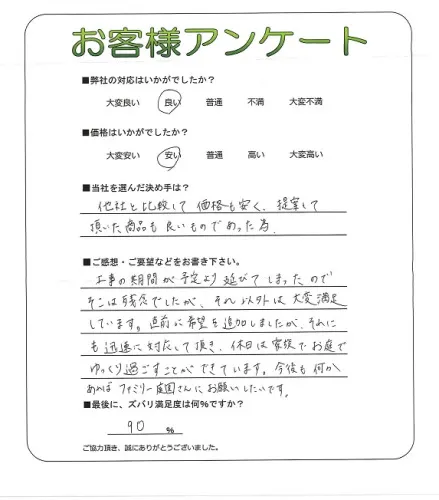 お客様アンケート
■弊社の対応はいかがでしたか？
大変良い 良い 普通 不満 大変不満
■価格はいかがでしたか？
大変安い 安い 普通 高い 大変高い
■当社を選んだ決め手は？
他社と比較して価格も安く、提案して
頂いた商品も良いものであった為.
■ご感想・ご要望などをお書き下さい。
工事の期間が予定より延びてしまったので
そこは残念でしたが、それ以外は大変満足
しています。直前に希望を追加しましたが、それに
も迅速に対応して頂き、休日は家族でお庭で
ゆっくり過ごすことができています。今後も何か
あればファミリー庭園さんにお願いしたいです。
■最後に、ズバリ満足度は何％ですか？
90 ％
ご協力頂き、誠にありがとうございました。